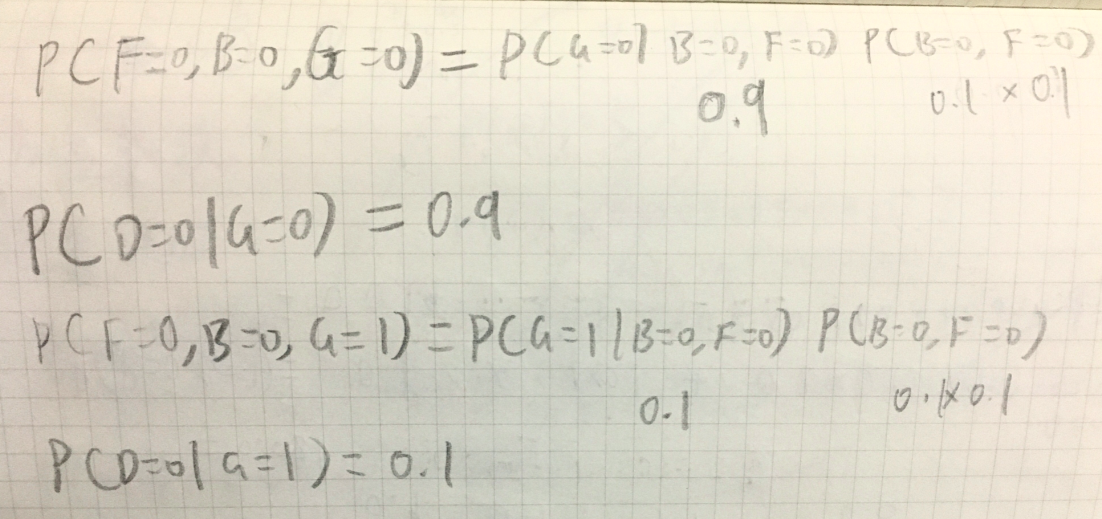 P(F=0, B=0, G=0) = P(G=0| B=0, F=0) P(B=0, F=0)
0.9 0.1 × 0.1
P(D=0|G=0) = 0.9
P(F=0, B=0, G=1) = P(G=1|B=0, F=0) P(B=0, F=0)
0.1 0.1×0.1
P(D=0|G=1) = 0.1